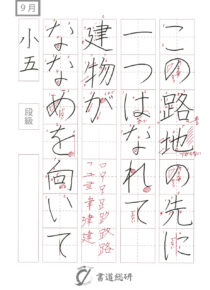 9月
小五
段級
この路地の先に
一つはなれて
建物が
ななめを向いて
書道総研